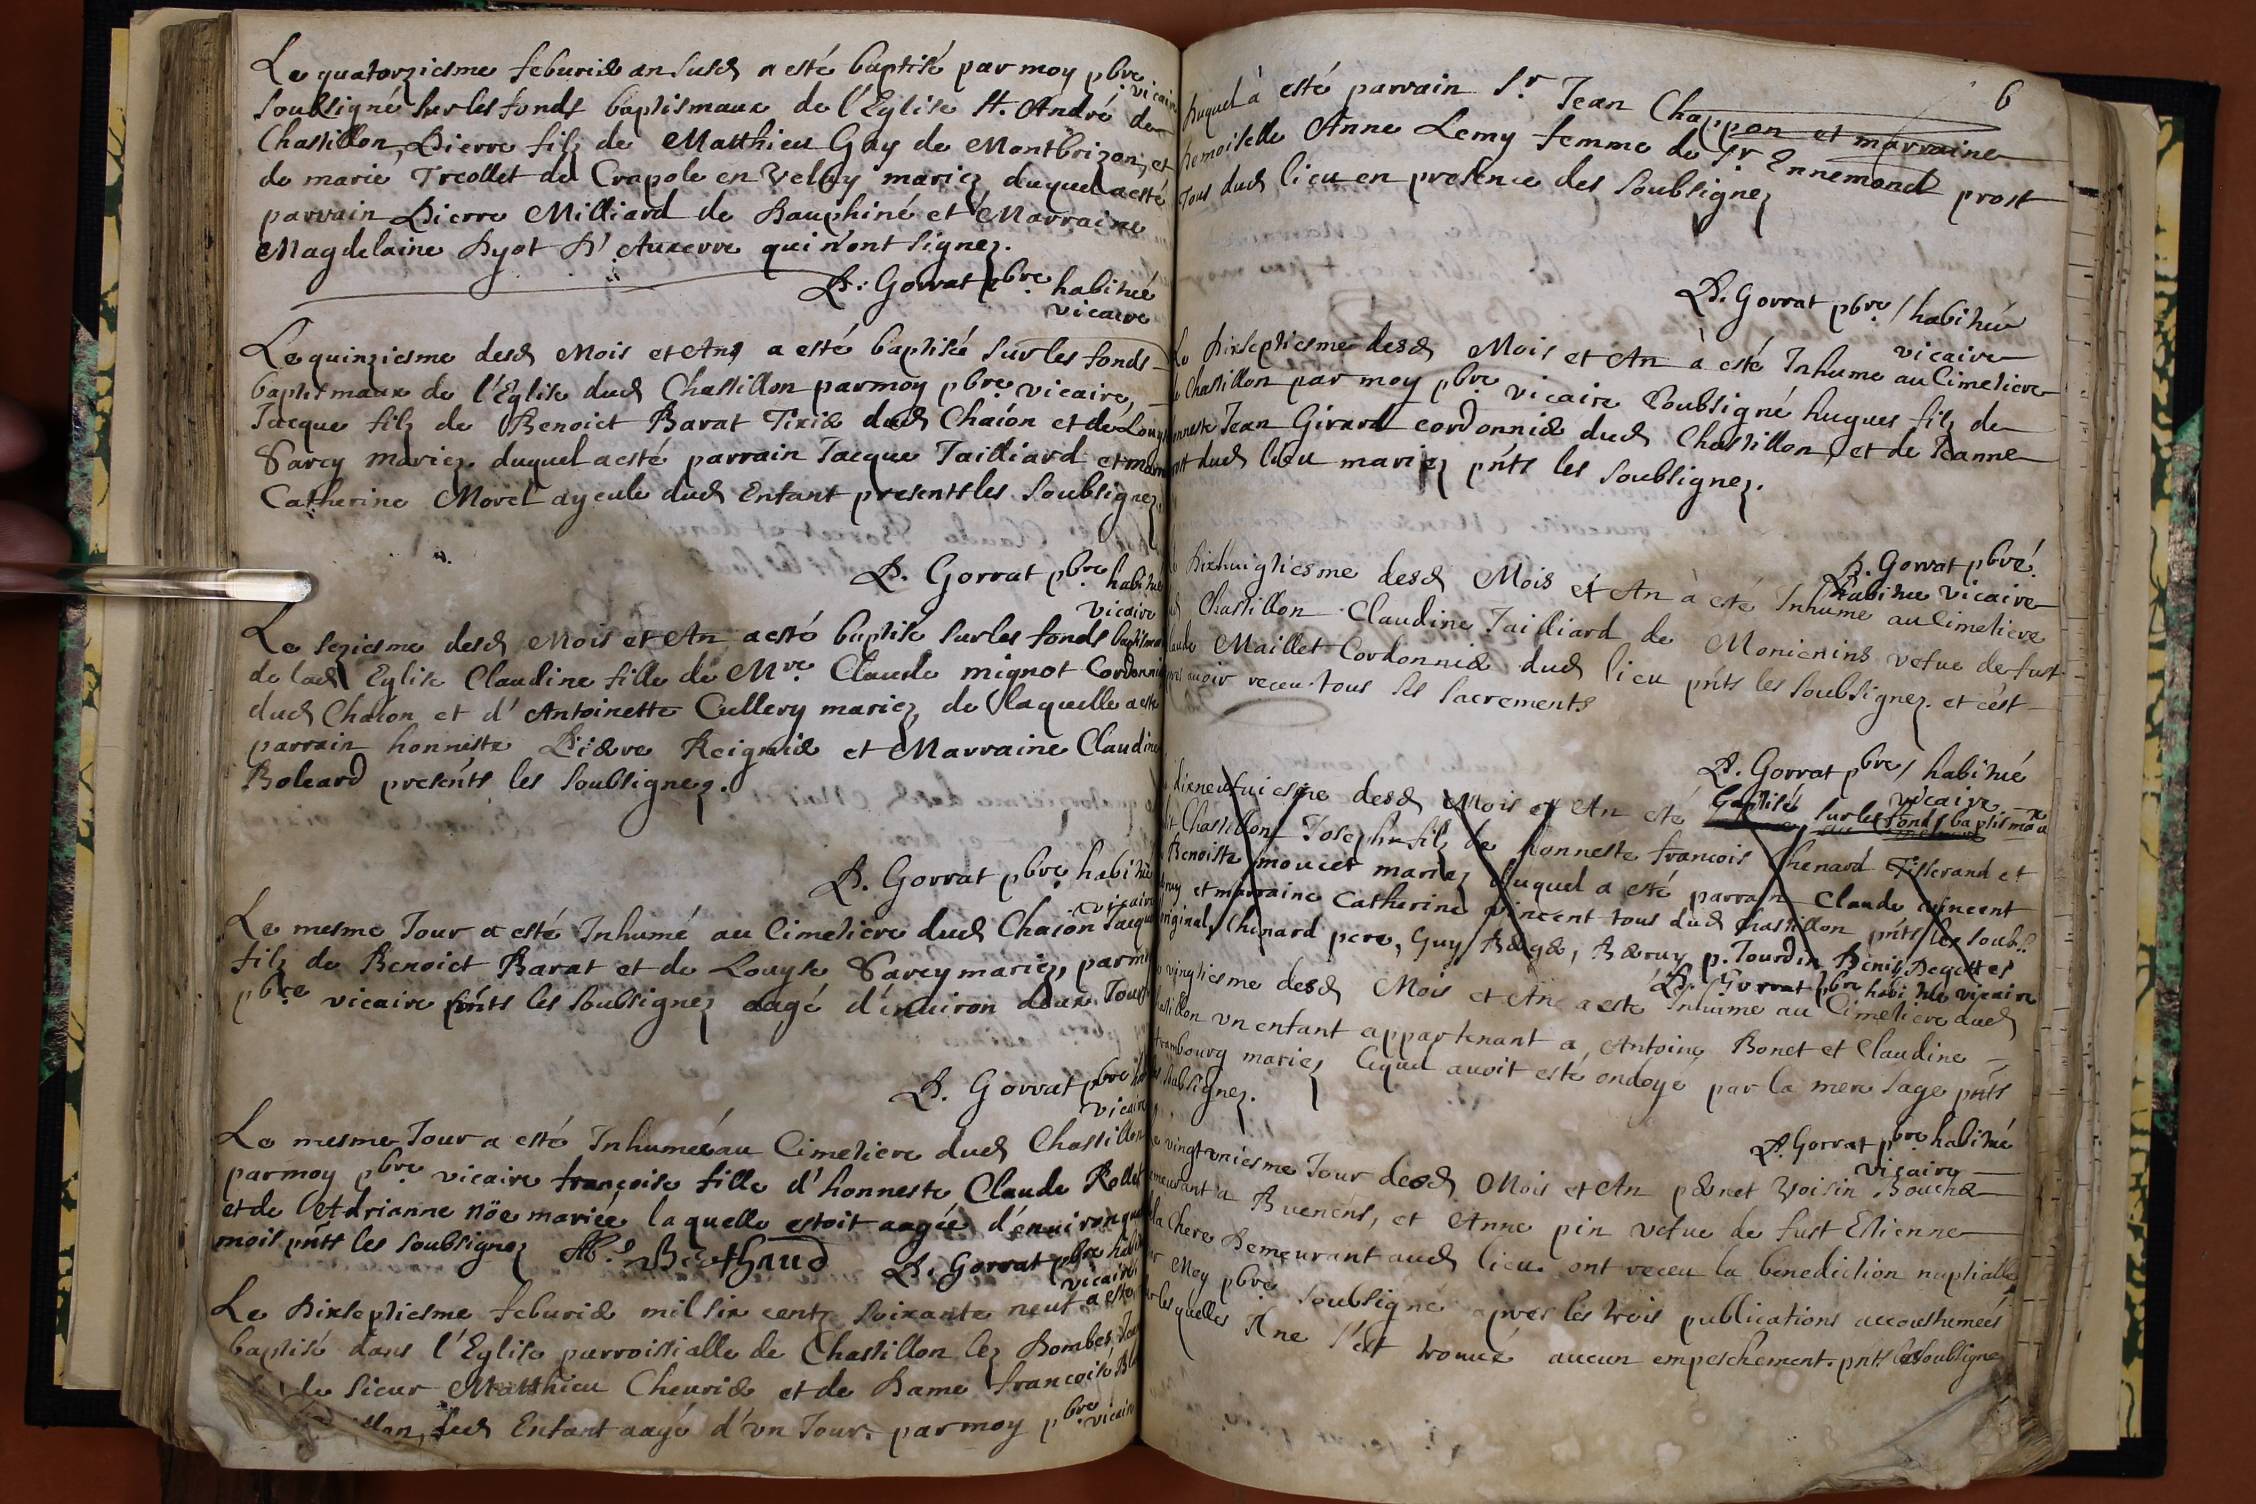 Le quatorziesme feburié an susd a esté baptisé par moy pbre vicaire
soubsigné sur les fonds baptismaux de l'Eglise St. André de
Chastillon, Pierre filz de Matthieu Gay de Montbrizon, et
de marie Treollet de Crapole en Velay mariez, duquel a esté
parrain Pierre Milliard de Dauphiné et Marraine
Magdelaine Dyot D'Auxerre qui n'ont signez.
P. Gorrat pbre habitué
vicaire
Le quinziesme desd Mois et An a esté baptisé sur les fonds
baptismaux de l'Eglise dud Chastillon par moy pbre vicaire,
Jacque filz de Benoict Barat Tixié dud Chaion et de Louyse
Sarcy mariez. duquel a esté parrain Jacque Tailliard et marr
Catherine Morel ayeule dud Enfant presents les soubsignez.
P. Gorrat pbre habitué
vicaire
Le seziesme desd Mois et An a esté baptisé sur les fonds baptismaux
de lad Eglise Claudine fille de Mre. Claude mignot Cordonnié
dud Chaion et d'Antoinette Cullery mariez, de laquelle a esté
parrain honneste Pierre Reignié et Marraine Claudine
Boleard presents les soubsignez.
P. Gorrat pbre habitué
vicaire
Le mesme Jour a esté Inhumé au Cimetiere dud Chaion Jacque
filz de Benoict Barat et de Louyse Sarcy mariez, par moy
pbre vicaire pnts les soubsignez aagé d'enuiron deux Jours
P. Gorrat pbre
vicaire
Le mesme Jour a esté Inhumée au Cimetiere dud Chastillon
par moy pbre. vicaire françoise fille d'honneste Claude Rollet
et de Adrianne nöe mariée, laquelle estoit aagée d'enuiron
mois pnts les soubsignez P. Gorrat pbre
vicaire
Le Dixseptiesme feburié mil six centz soixante neuf a esté
baptisé dans l'Eglise parroissialle de Chastillon lez Dombes,
de sieur Matthieu Cheurié et de Dame françoise
dud Enfant aagé d'vn Jour. par moy pbre. vicaire
6
duquel à esté parrain Sr. Jean Chappon et marraine
Demoiselle Anne Lemy femme de Sr Ennemond prost
tous dud lieu en presence des soubsignez
P. Gorrat pbre / habitué
vicaire
Le Dixseptiesme desd Mois et An à esté Inhume au Cimetiere
de Chastillon par moy pbre vicaire soubsigné hugues filz de
honneste Jean Girard cordonnié dud Chastillon, et de Jeanne
dud lieu mariez pnts les soubsignez.
P. Gorrat pbré.
habitué vicaire
Dixhuigtiesme desd Mois et An à esté Inhume au Cimetiere
Chastillon Claudine Tailliard de Monienins vefue de fust
Claude Maillet Cordonnié dud lieu pnts les soubsignez. et c'est
apres auoir receu tous ses sacrements
P. Gorrat pbre / habitué
vicaire
dixneufuiesme desd Mois et An esté baptisé sur les fonds baptismau
Chastillon Joseph filz de honneste francois Chenard Tisserand et
Benoiste moucet mariez duquel a esté parrain Claude vincent
et marraine Catherine vincent tous dud Chastillon pnts les soub
Chenard pere, Guy p. Jourdin Denis
P. Gorrat pbre habitué vicaire
vingtiesme desd Mois et An a esté Inhume au Cimetiere dud
Chastillon vn enfant appartenant a Antoine Bonet et Claudine
mariez lequel auoit esté ondoyé par la mere sage pnts
les soubsignez.
P. Gorrat pbre habitué
vicaire
vingtvniesme Jour desd Mois et An Voisin Bouché
demeurant a Buenens, et Anne pin vefue de fust Estienne
la Chere Demeurant aud lieu ont receu la benediction nuptialle
par Moy pbre soubsigné apres les trois publications accoustumeés
lesquelles Il ne s'est trouué aucun empeschement. pnts les soubsigne